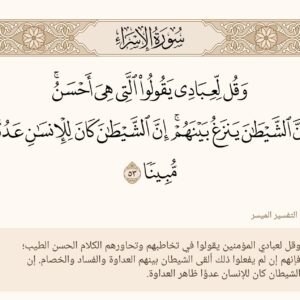 سُورَةُ الإِسْرَاءِ
وَقُل لِّعِبَادِي يَقُولُوا۟ ٱلَّتِي هِيَ أَحْسَنُ ۚ
نَّ ٱلشَّيْطَٰنَ يَنزَغُ بَيْنَهُمْ ۚ إِنَّ ٱلشَّيْطَٰنَ كَانَ لِلْإِنسَٰنِ عَدُوًّ
مُّبِينًا ٥٣
التفسير الميسر
وقل لعبادي المؤمنين يقولوا في تخاطبهم وتحاورهم الكلام الحسن الطيب؛
فإنهم إن لم يفعلوا ذلك ألقى الشيطان بينهم العداوة والفساد والخصام. إن
الشيطان كان للإنسان عدوًا ظاهر العداوة.